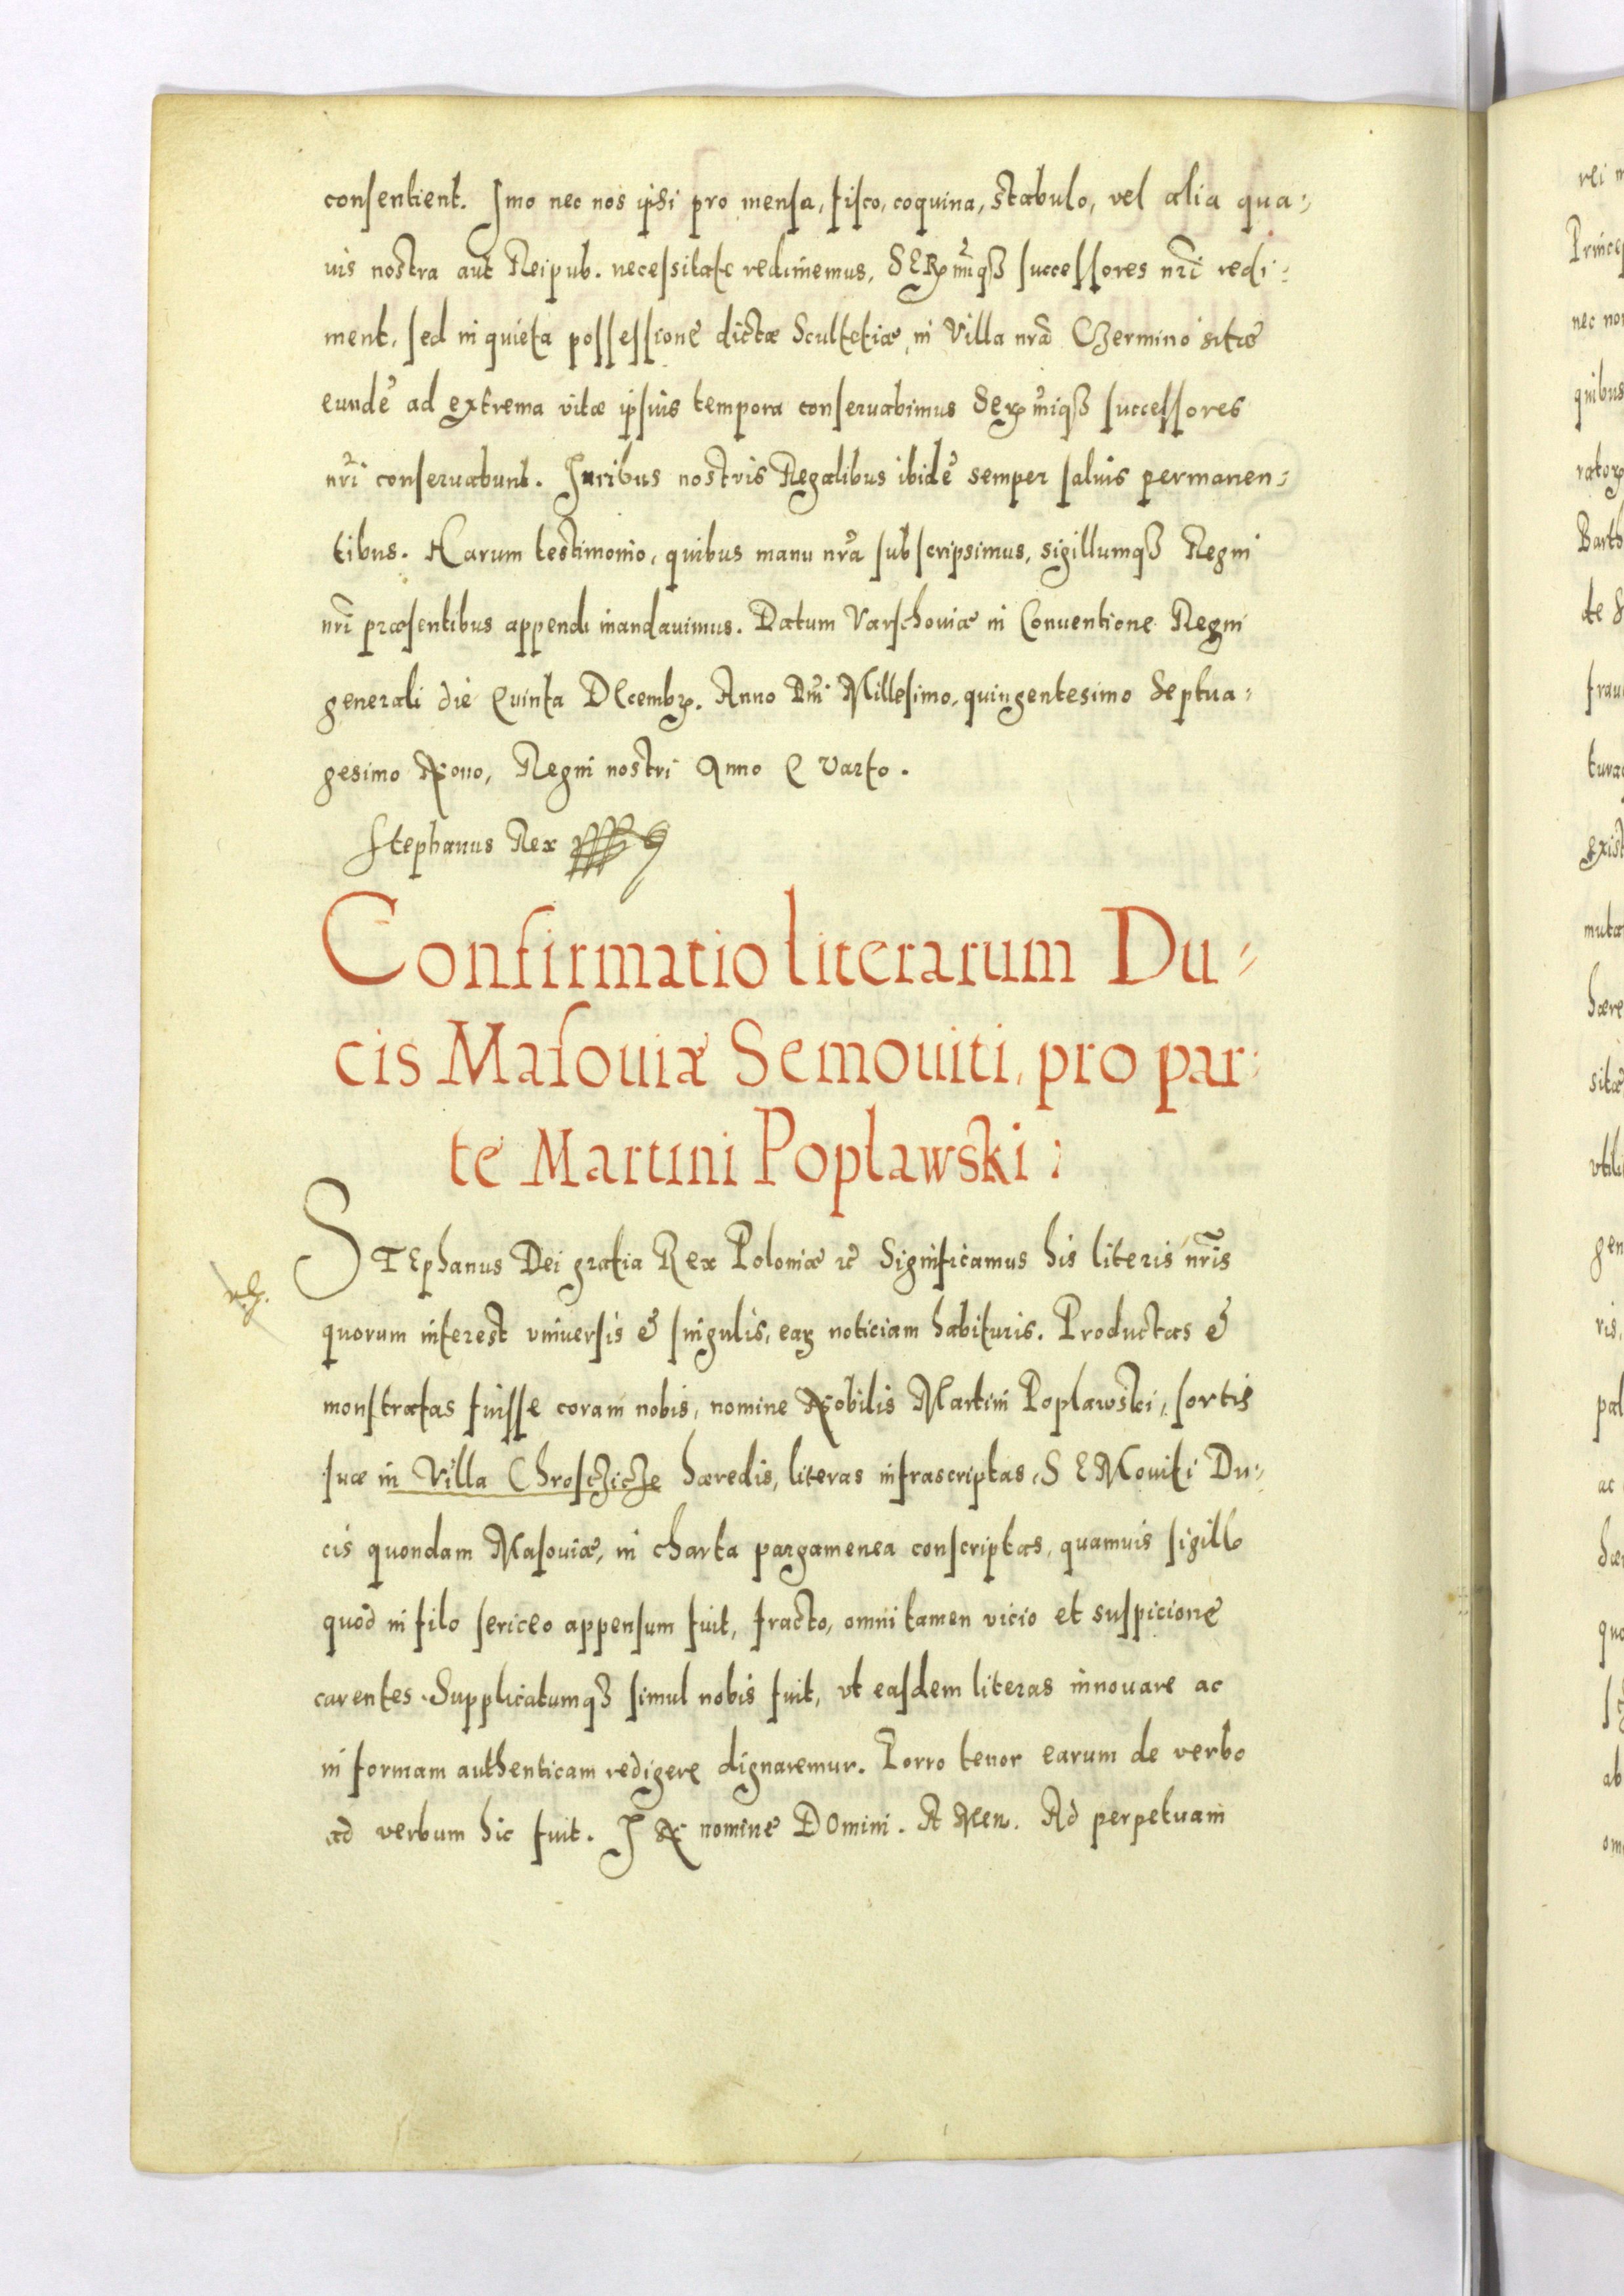 consentient. Imo nec nos ipsi pro mensa, fisco, coquina, stabulo, vel alia qua-
uis nostra aut Reipub. necessitate redimemus, SERmiq3 successores nr̃i redi-
ment, sed in quieta possessione dictæ Scultetiæ, in Villa nr̃a Czermino sitæ
eundē ad extrema vitæ ipsius tempora conseruabimus Sermiq3 successores
nr̃i conseruabunt. Iuribus nostris Regalibus ibidē semper saluis permanen-
tibus. Harum testimonio, quibus manu nr̃a subscripsimus, sigillumq3 Regni
nr̃i præsentibus appendi mandauimus. Datum Varschouiæ in Conuentione Regni
generali die Quinta DEcembr. Anno Dñi Millesimo, quingentesimo Septua-
gesimo Nono, Regni nostri Anno Quarto.
Stephanus Rex
Confirmatio literarum Du-
cis Masouiæ Semouiti, pro par-
te Martini Poplawski:
STEphanus Dei gratia Rex Poloniæ &c̃ Significamus his literis nr̃is
quorum interest vniuersis & singulis, earꝝ noticiam habituris. Productas &
monstratas fuisse coram nobis, nomine Nobilis Martini Poplawski, sortis
suæ in Villa Chrosczicze hæredis, literas infrascriptas, SEMouiti Du-
cis quondam Masouiæ, in charta pargamenea conscriptas, quamuis sigillo
quod in filo sericeo appensum fuit, fracto, omni tamen vicio et suspicione
carentes. Supplicatumq3 simul nobis fuit, vt easdem literas innouare ac
in formam authenticam redigere dignaremur. Porro tenor earum de verbo
ad verbum hic fuit. IN nomine DOmini. AMen. Ad perpetuam